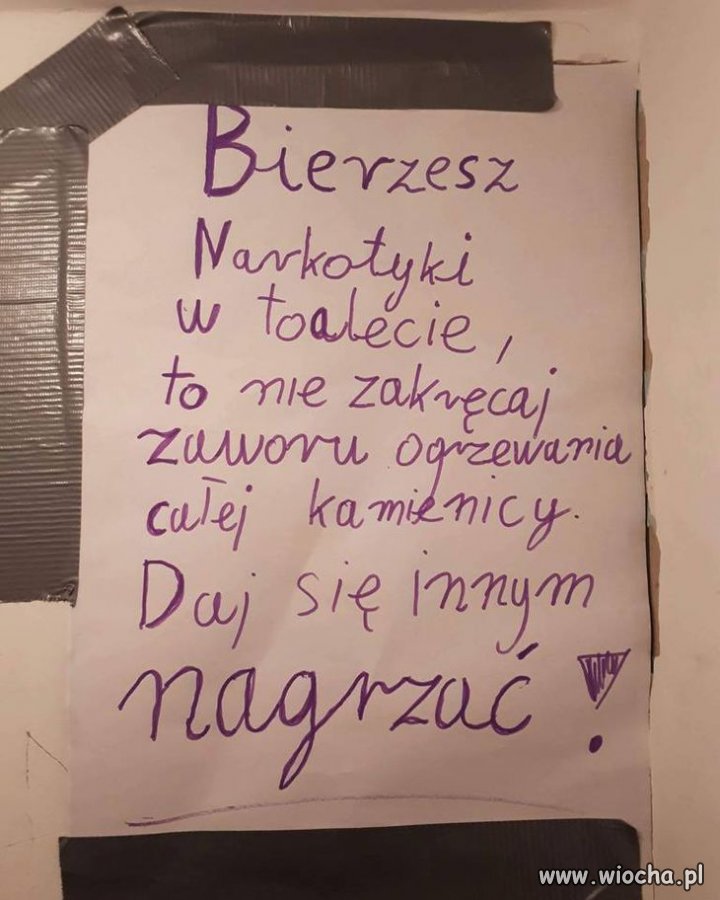 Bierzesz
Narkotyki
w toalecie,
to nie zakręcaj
zaworu ogrzewania
całej kamienicy.
Daj się innym
nagrzać!
www.wiocha.pl